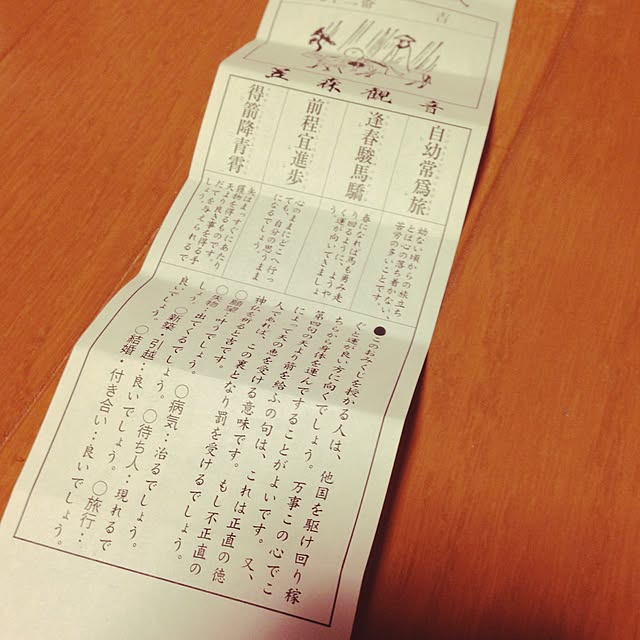 番
吉
觀音
自幼常爲旅
幼ない頃からの旅立ち
とは心の落ち着かない、
苦労の多いことです。
逢春駿馬驕
春になれば馬も勇み走
り回るように、ようや
く運が向いてきましょ
う。
前程宜進歩
心のままにどこへ行っ
ても、自分の思うまま
になるでしょう。
得箭降青霄
矢はまっすぐにあたり
獲物を得るものです。
天より良き事を得る手
だてを与えられるで
しょう。
●このおみくじを授かる人は、他国を駆け回り稼
ぐと運が良い方に向くでしょう。万事この心でこ
ちらから身体を運んですることがよいです。又、
第四句の天より箭を給ふの句は、これは正直の徳
によって天の恵を受ける意味です。もし不正直の
人であれば、この裏となり罰を受けるでしょう。
神仏を祈ると吉です。
○願望…叶うでしょう。○病気…治るでしょう。
○失物…出てくるでしょう。○待ち人…現れるで
しょう。○新築・引越…良いでしょう。○旅行…
良いでしょう。○結婚・付き合い…良いでしょう。